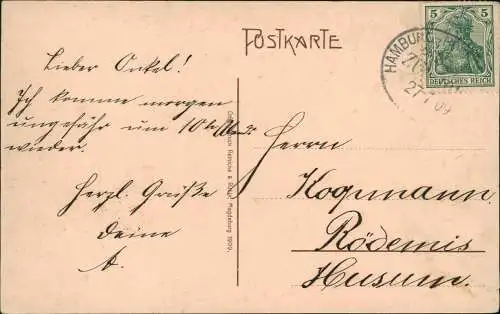 POSTKARTE
Lieber Onkel!
Ich komme morgen
ungefähr um 10 h Abends
wieder.
Herzl. Grüße
Deine
A.
Herrn
Koopmann.
Rödemis
Husum.
HAMBURG
27 7 09
5 5
DEUTSCHES REICH
Magdeburg 1909.